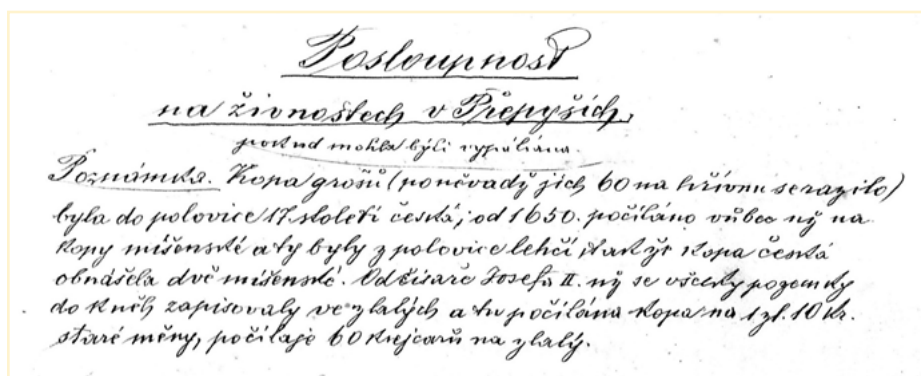 Posloupnost
na živnostech v Přepyších,
pokud mohla býti vypátrána.
Poznámka. Kopa grošů (poněvadž jich 60 na hřivnu se razilo)
byla do polovice 17. století česká; od 1650. počítáno vůbec již na
kopy míšenské a ty byly z polovice lehčí, takže kopa česká
obnášela dvě míšenské. Od císaře Josefa II. již se všecky pozemky
do kněh zapisovaly ve zlatých a tu počítána kopa na 1 zl. 10 kr.
staré měny, počítaje 60 krejcarů na zlatý.